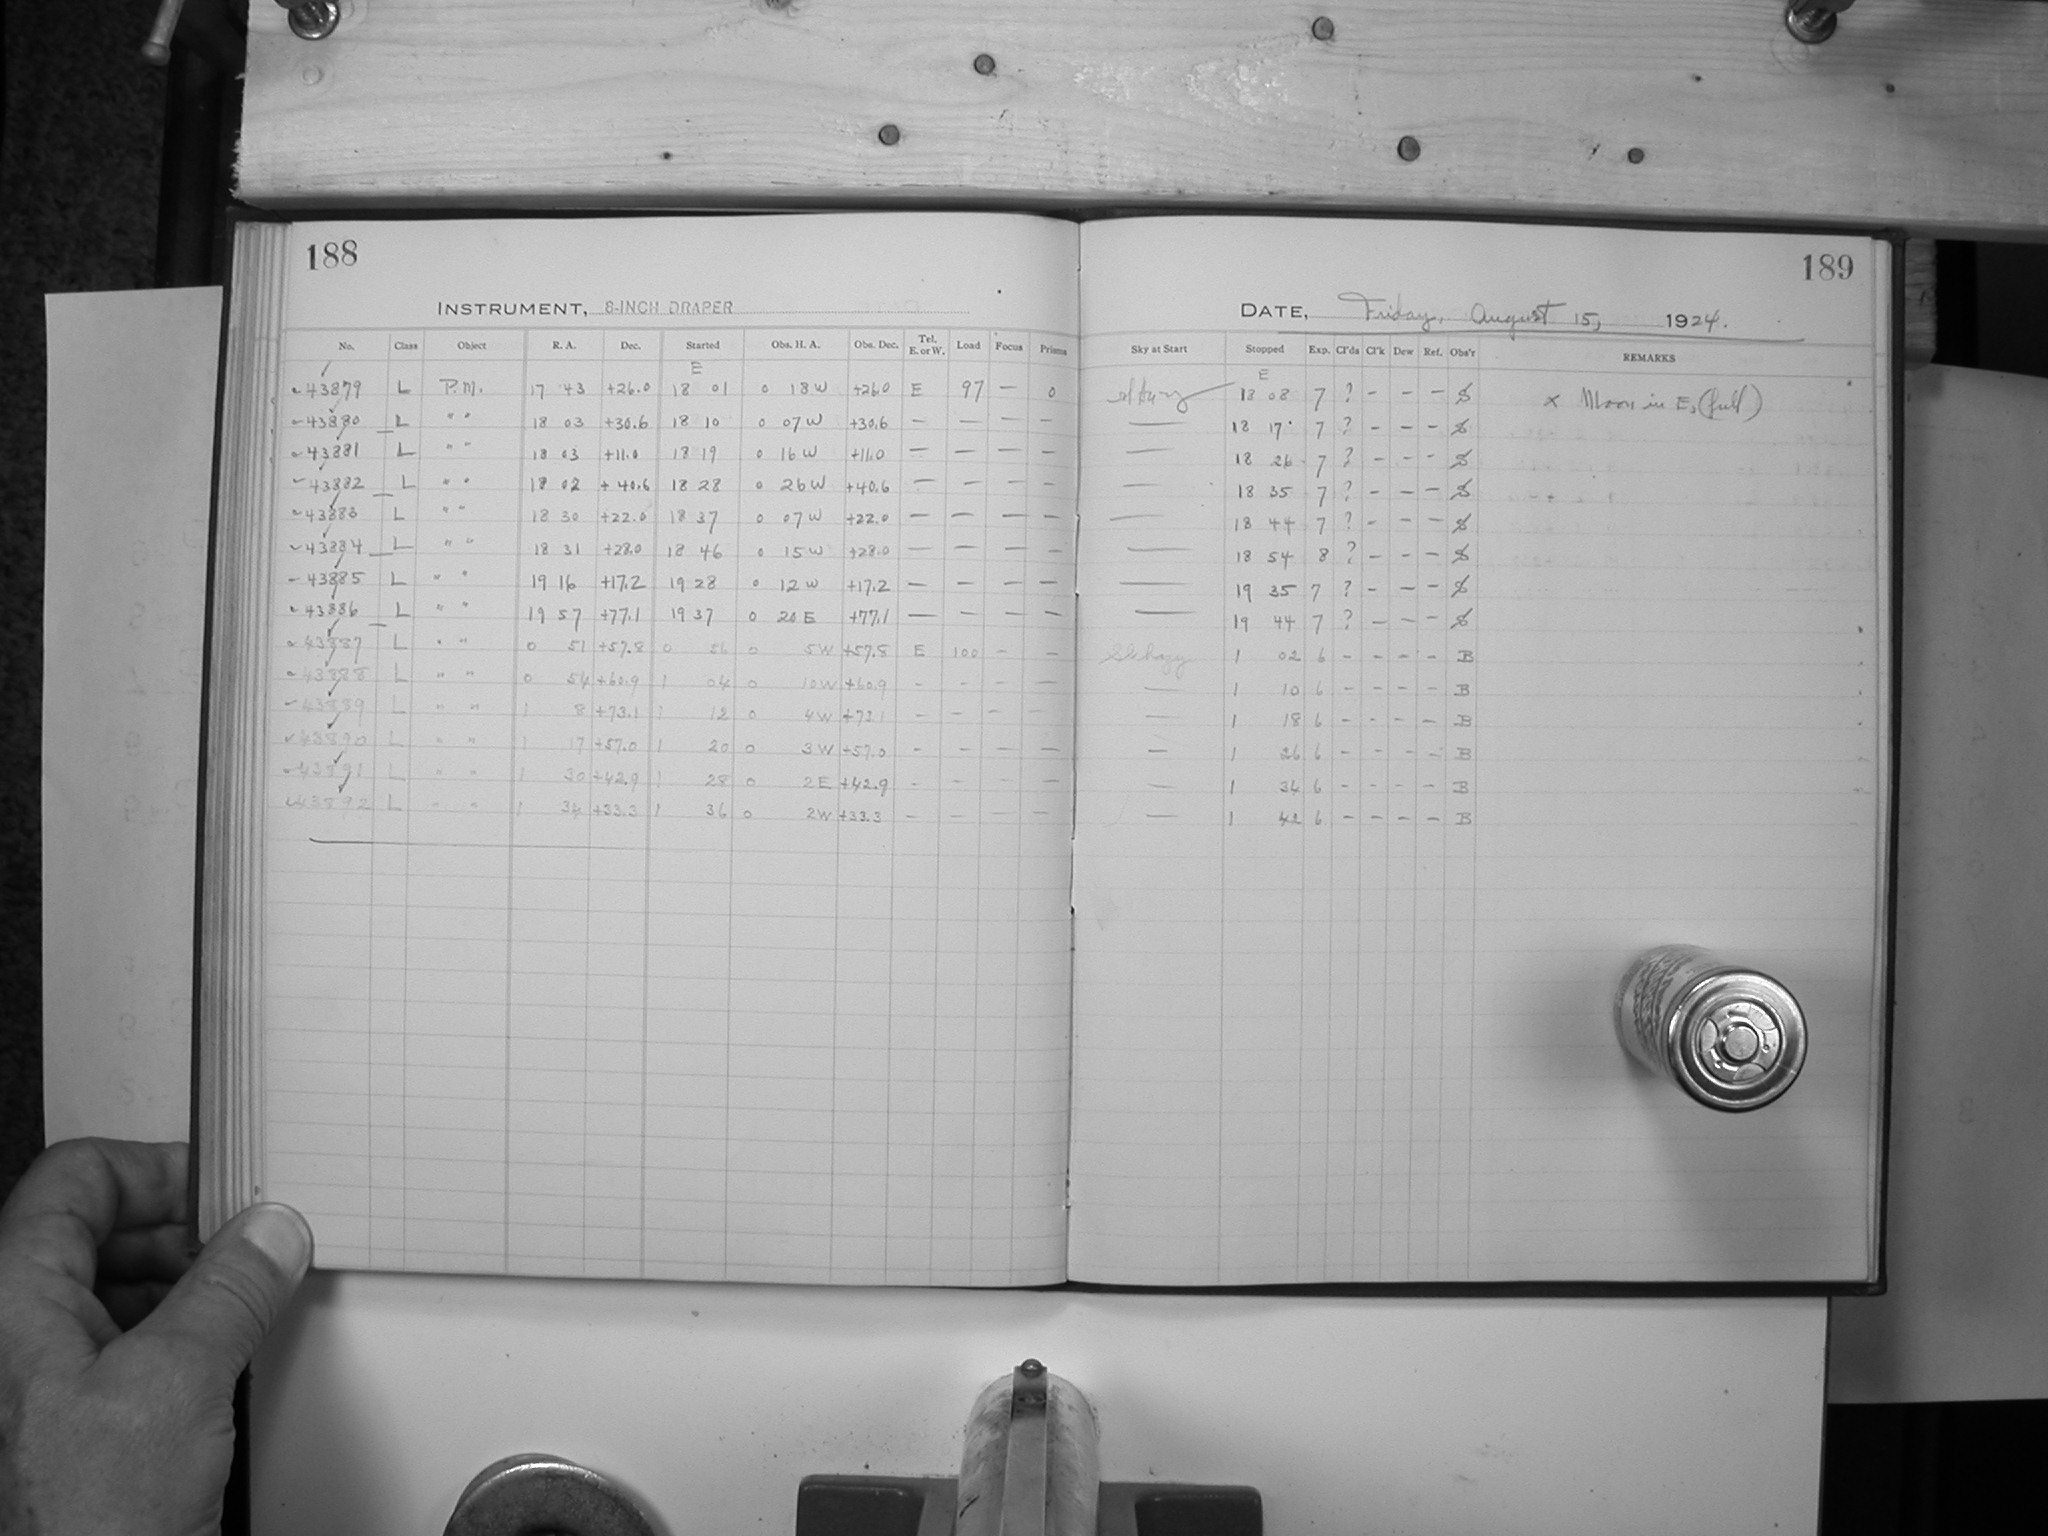 188
189
INSTRUMENT, 8-INCH DRAPER
DATE, Friday, August 15, 1924.
No. Class Object R. A. Dec. Started Obs. H. A. Obs. Dec. Tel. E. or W. Load Focus Prisms Sky at Start Stopped Exp. Cl'ds Cl'k Dew Ref. Obs'r REMARKS
E E
43879 L P.M. 17 43 +26.0 18 01 0 18 W +26.0 E 97 — 0 18 08 7 ? - - - S x Moon in E, (full)
43880 L " " 18 03 +30.6 18 10 0 07 W +30.6 — — — — — 18 17 7 ? - - - S
43881 L " " 18 03 +11.0 18 19 0 16 W +11.0 — — — — — 18 26 7 ? - - - S
43882 L " " 18 02 +40.6 18 28 0 26 W +40.6 — — — — — 18 35 7 ? - - - S
43883 L " " 18 30 +22.0 18 37 0 07 W +22.0 — — — — — 18 44 7 ? - - - S
43884 L " " 18 31 +28.0 18 46 0 15 W +28.0 — — — — — 18 54 8 ? - - - S
43885 L " " 19 16 +17.2 19 28 0 12 W +17.2 — — — — — 19 35 7 ? - - - S
43886 L " " 19 57 +77.1 19 37 0 20 E +77.1 — — — — — 19 44 7 ? - - - S
43887 L " " 0 51 +57.8 0 56 0 5 W +57.8 E 100 - - Sl hazy 1 02 6 - - - - B
43888 L " " 0 54 +60.9 1 04 0 10 W +60.9 - - - - — 1 10 6 - - - - B
43889 L " " 1 8 +73.1 1 12 0 4 W +73.1 - - - - — 1 18 6 - - - - B
43890 L " " 1 17 +57.0 1 20 0 3 W +57.0 - - - - — 1 26 6 - - - - B
43891 L " " 1 30 +42.9 1 28 0 2 E +42.9 - - - - — 1 34 6 - - - - B
43892 L " " 1 34 +33.3 1 36 0 2 W +33.3 - - - - — 1 42 6 - - - - B